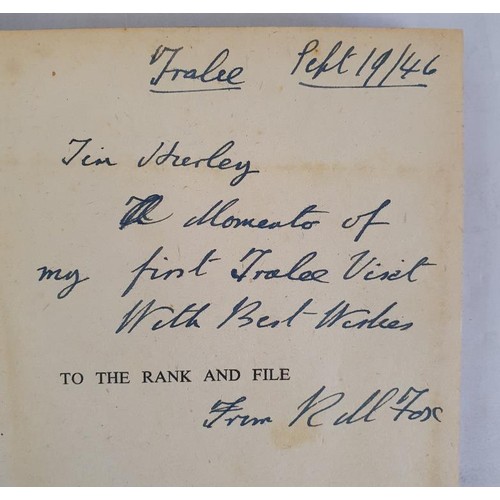 Tralee Sept 19/46
Tim Hurley
A Momento of
my first Tralee Visit
With Best Wishes
TO THE RANK AND FILE
From R M Fox